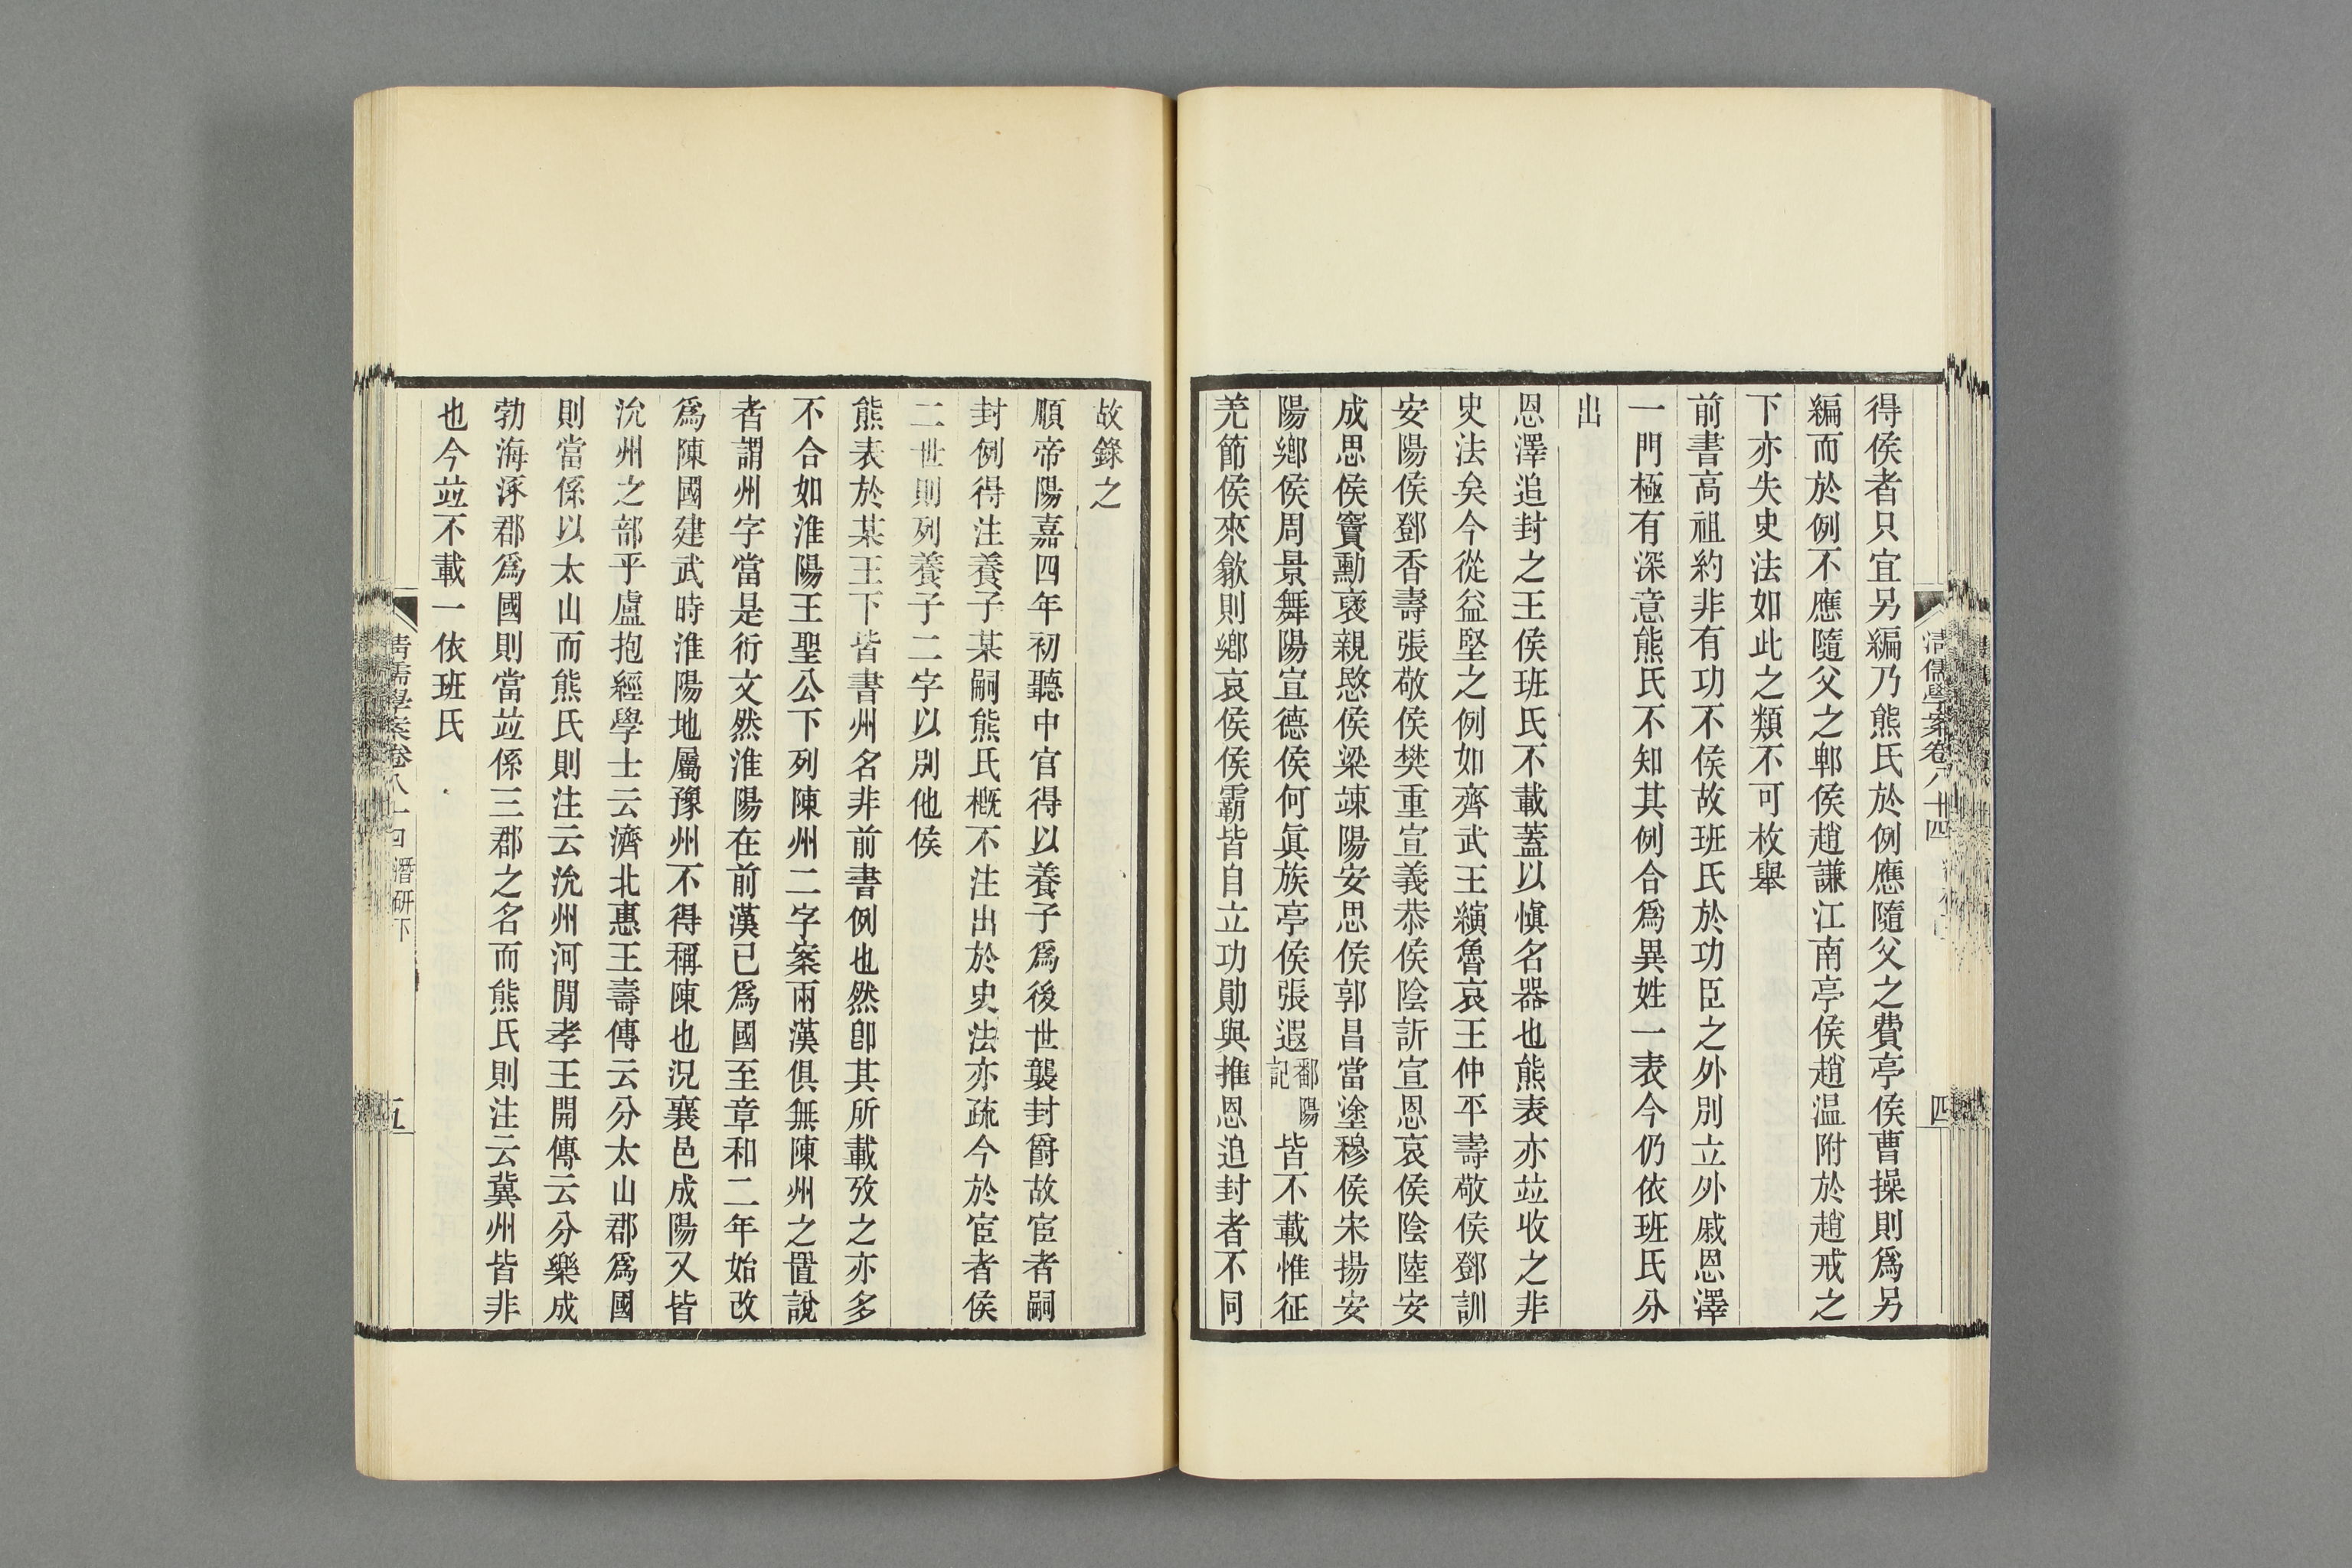 得侯者只宜另編乃熊氏於例應隨父之費亭侯曹操則爲另
編而於例不應隨父之郫侯趙謙江南亭侯趙温附於趙戒之
下亦失史法如此之類不可枚舉
前書高祖約非有功不侯故班氏於功臣之外別立外戚恩澤
一門極有深意熊氏不知其例合爲異姓一表今仍依班氏分
出
恩澤追封之王侯班氏不載蓋以愼名器也熊表亦竝收之非
史法矣今從益堅之例如齊武王縯魯哀王仲平壽敬侯鄧訓
安陽侯鄧香壽張敬侯樊重宣義恭侯陰訢宣恩哀侯陰陸安
成思侯竇勳襃親愍侯梁竦陽安思侯郭昌當塗穆侯宋揚安
陽鄉侯周景舞陽宣德侯何眞族亭侯張遐鄱陽記皆不載惟征
羌節侯來歙則鄉哀侯侯霸皆自立功勛與推恩追封者不同
清儒學案卷八十四
四
故錄之
順帝陽嘉四年初聽中官得以養子爲後世襲封爵故宦者嗣
封例得注養子某嗣熊氏概不注出於史法亦疏今於宦者侯
二世則列養子二字以別他侯
熊表於某王下皆書州名非前書例也然卽其所載攷之亦多
不合如淮陽王聖公下列陳州二字案兩漢俱無陳州之置說
者謂州字當是衍文然淮陽在前漢已爲國至章和二年始改
爲陳國建武時淮陽地屬豫州不得稱陳也況襄邑成陽又皆
沇州之部乎盧抱經學士云濟北惠王壽傳云分太山郡爲國
則當係以太山而熊氏則注云沇州河閒孝王開傳云分樂成
勃海涿郡爲國則當竝係三郡之名而熊氏則注云冀州皆非
也今竝不載一依班氏
清儒學案卷八十四 潛研下
五